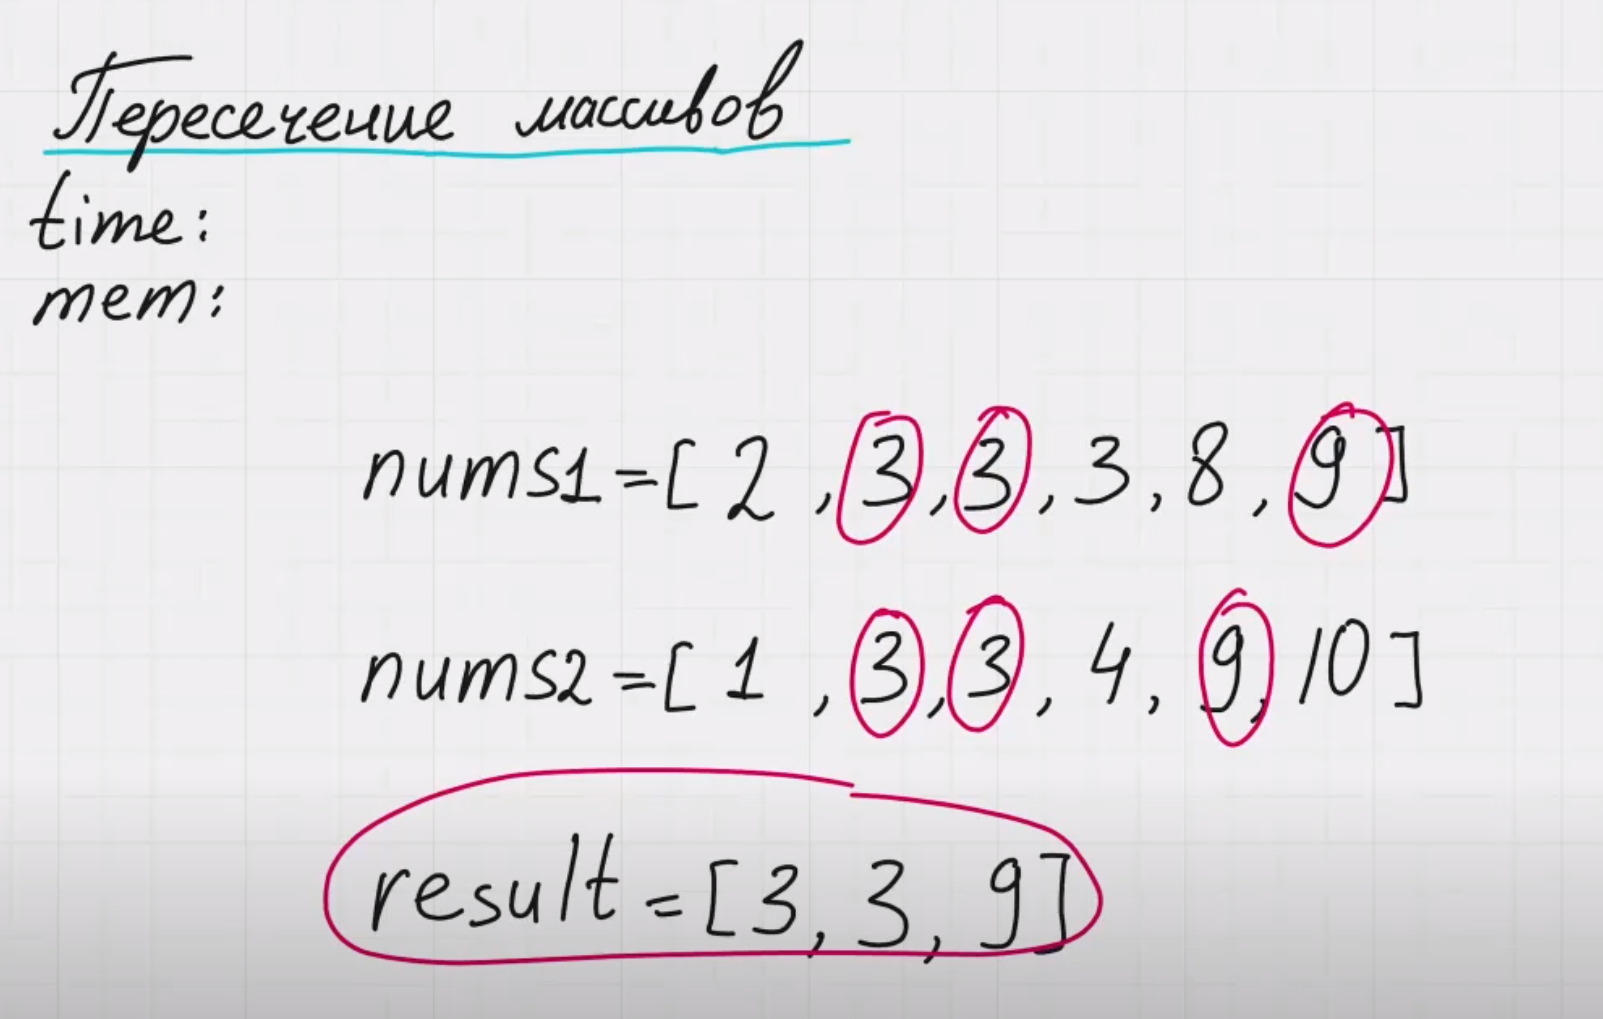 Пересечение массивов
time:
mem:
nums1=[2,3,3,3,8,9]
nums2=[1,3,3,4,9,10]
result=[3,3,9]